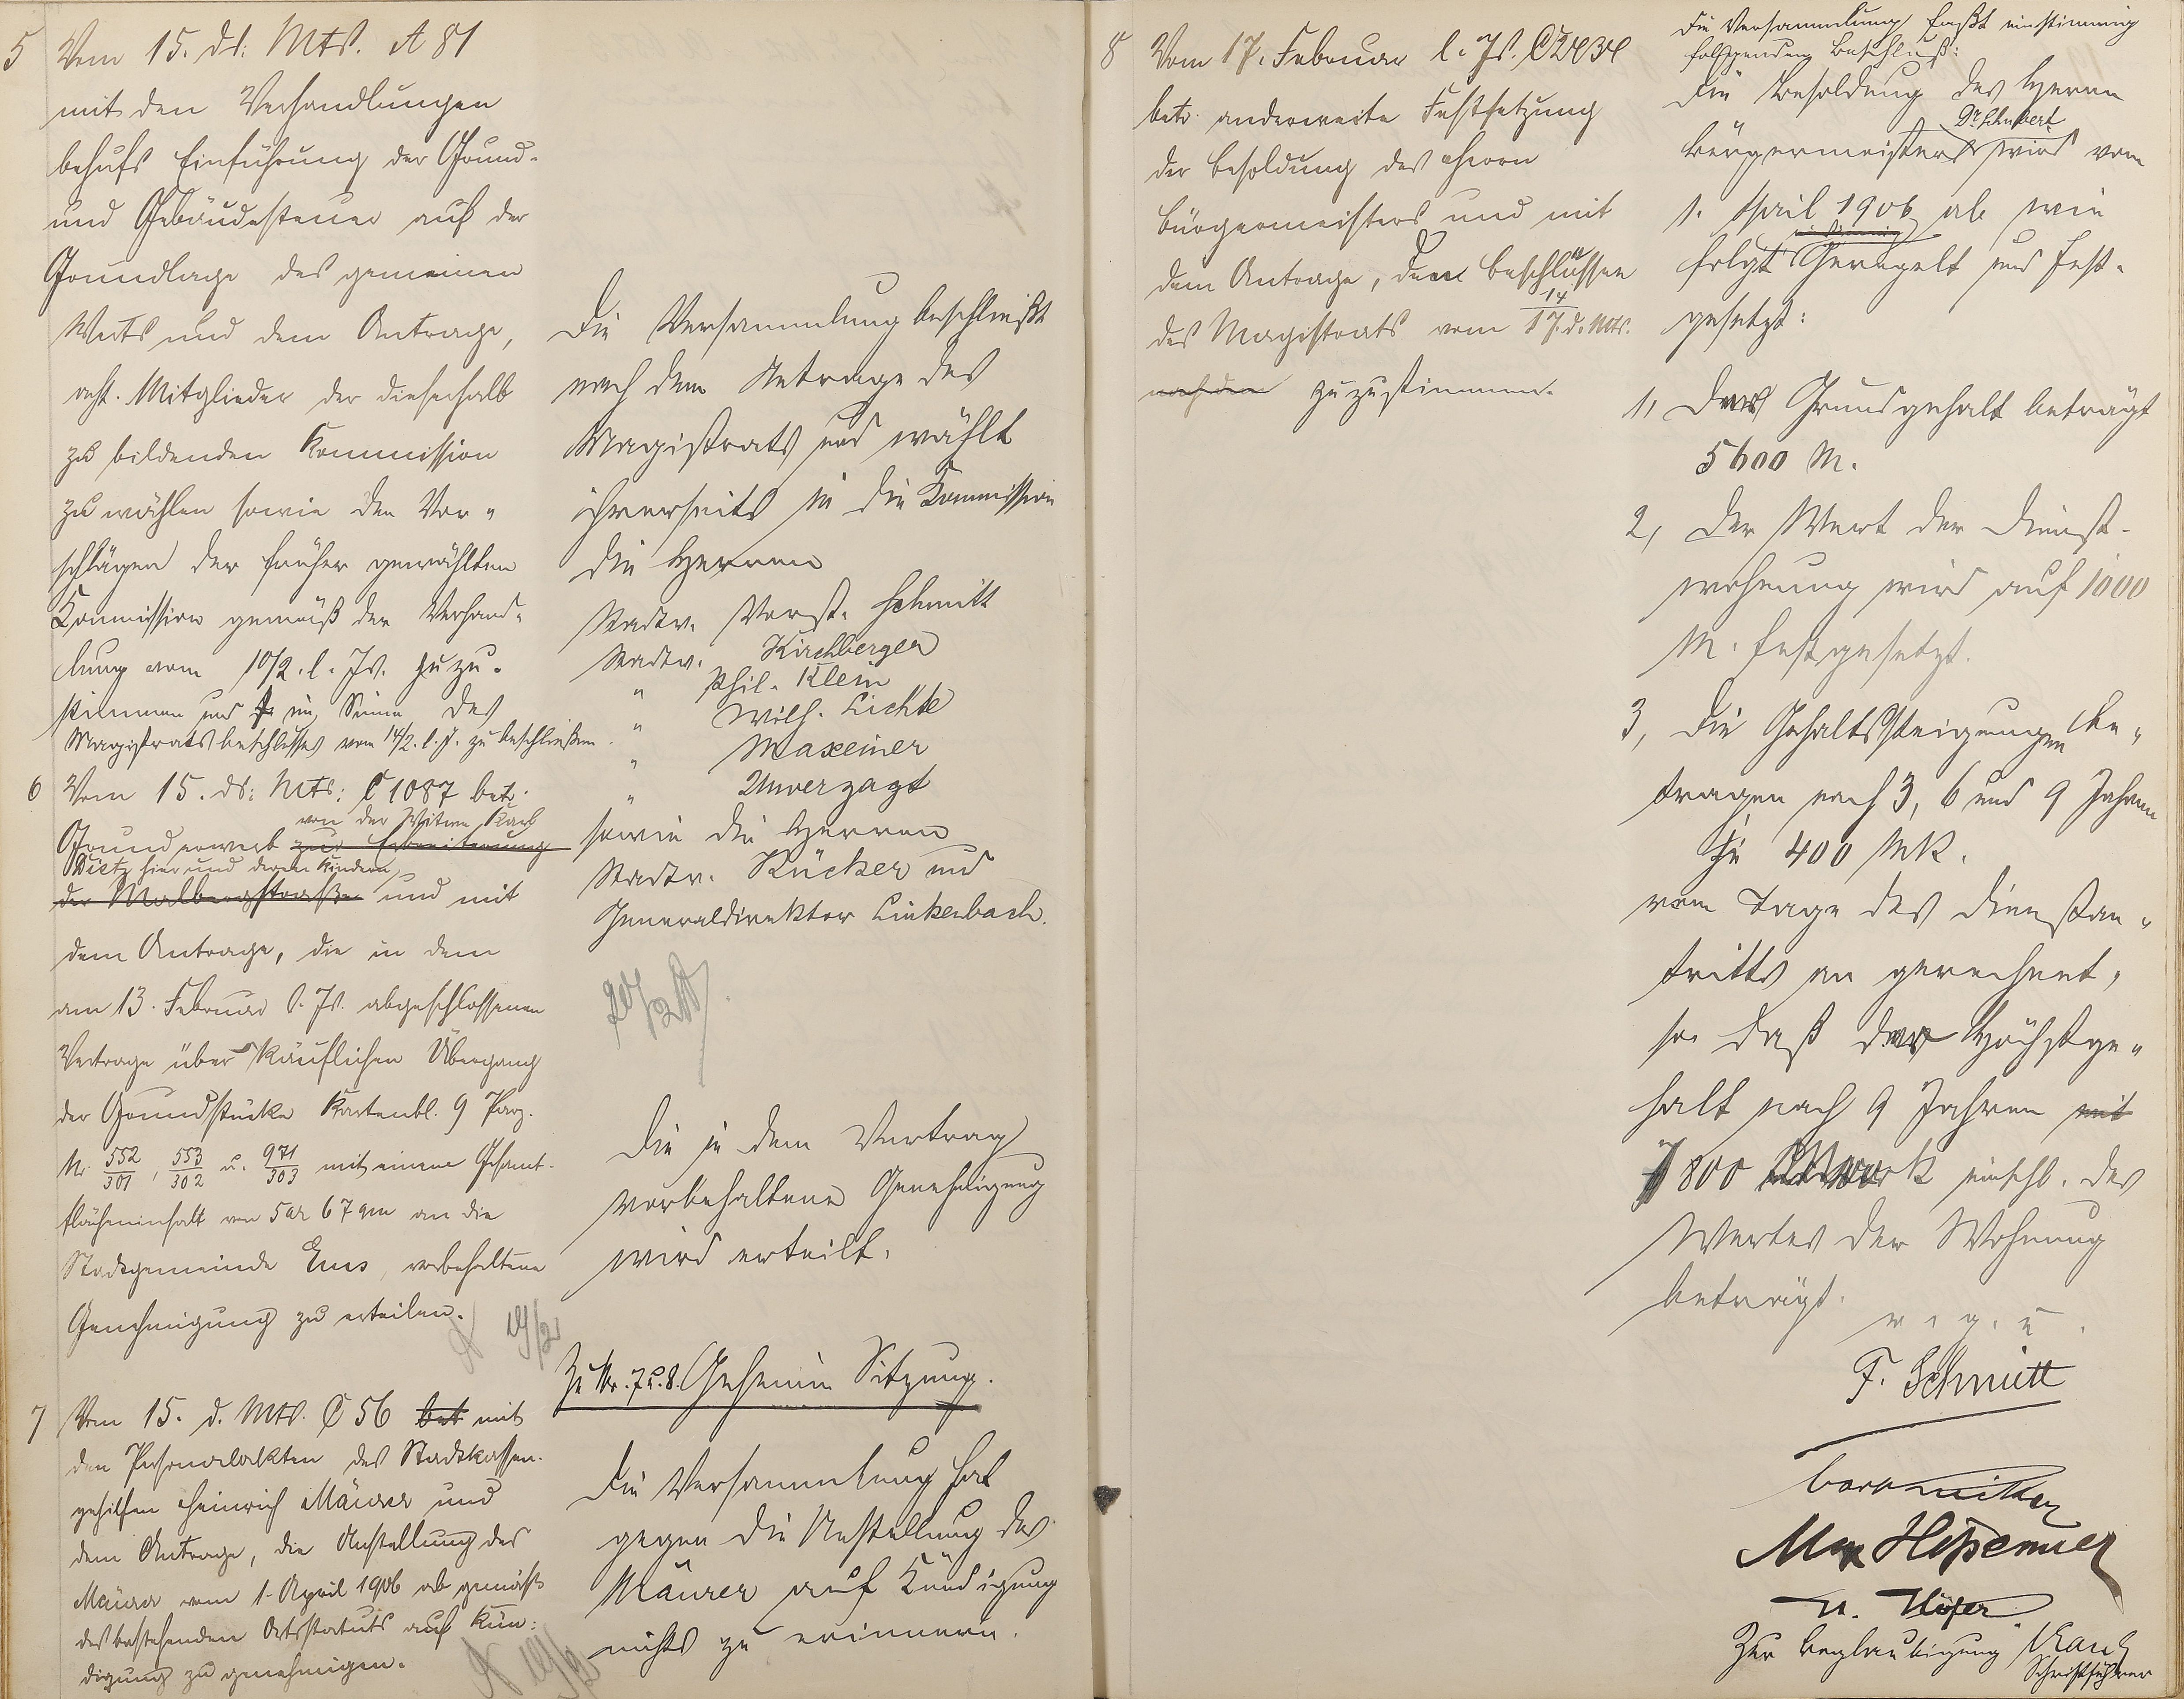 5 Vom 15. ds: Mts. A 81
mit den Verhandlungen
behufs Einführung der Grund-
und Gebäudesteuer auf der
Grundlage des gemeinen
Werts und dem Antrage,
acht Mitglieder der dieserhalb
zu bildenden Kommission
zu wählen sowie den Vor-
schlägen der früher gewählten
Kommission gemäß der Verhand-
lung vom 10/2. l. Js. zuzu-
stimmen und im Sinne des
Magistratsbeschlusses vom 14/2. l. J. zu beschließen.
Die Versammlung beschließt
nach dem Antrage des
Magistrats und wählt
ihrerseits in die Kommission
die Herren
Stadtv. Vorst. Schmitt
Stadtv. Kirchberger
" Phil. Klein
" Wilh. Lichte
" Maxeiner
" Unverzagt
sowie die Herren
Stadtv. Rücker und
Generaldirektor Linkenbach.
6 Vom 15. ds: Mts: C 1087 betr.
von der Witwe Karl
Grunderwerb zur Erbreiterung
Dietz hier und deren Kindern
der Malbergstraße und mit
dem Antrage, die in dem
am 13. Februar l. Js. abgeschlossenen
Vertrage über käuflichen Übergang
der Grundstücke Kartenbl. 9 Parz.
Nr. 552/301, 553/302 u. 971/303 mit einem Gesamt-
flächeninhalt von 5 ar 67 qm an die
Stadtgemeinde Ems vorbehaltene
Genehmigung zu erteilen.
Die in dem Vertrag
vorbehaltene Genehmigung
wird erteilt.
Zu Nr. 7 u. 8. Geheime Sitzung.
7 Vom 15. d. Mts. C 56 bet mit
den Personalakten des Stadtkassen-
gehilfen Heinrich Mäurer und
dem Antrage, die Anstellung des
Mäurer vom 1. April 1906 ab gemäß
des bestehenden Ortsstatuts auf Kün-
digung zu genehmigen.
Die Versammlung hat
gegen die Anstellung des
Mäurer auf Kündigung
nichts zu erinnern.
8 Vom 17. Februar l. Js. C
betr. anderweite Festsetzung
der Besoldung des Herrn
Bürgermeisters und mit
dem Antrage, den Beschlüssen
des Magistrats vom 14/17. d. Mts.
nach den zuzustimmen.
Die Versammlung faßt einstimmig
folgenden Beschluß:
Die Besoldung des Herrn
Dr. Schubert
Bürgermeisters wird vom
1. April 1906 ab wie
folgt geregelt und fest-
gesetzt:
1, Das Grundgehalt beträgt
5600 M.
2, Der Wert der Dienst-
wohnung wird auf 1000
M. festgesetzt.
3, Die Gehaltssteigungen be-
tragen nach 3, 6 und 9 Jahren
je 400 Mk.
vom Tage des Dienstan-
tritts an gerechnet,
so daß das Höchstge-
halt nach 9 Jahren mit
7800 Mark einschl. des
Wertes der Wohnung
beträgt.
v. g. u.
F. Schmitt
Zur Beglaubigung
Schriftführer